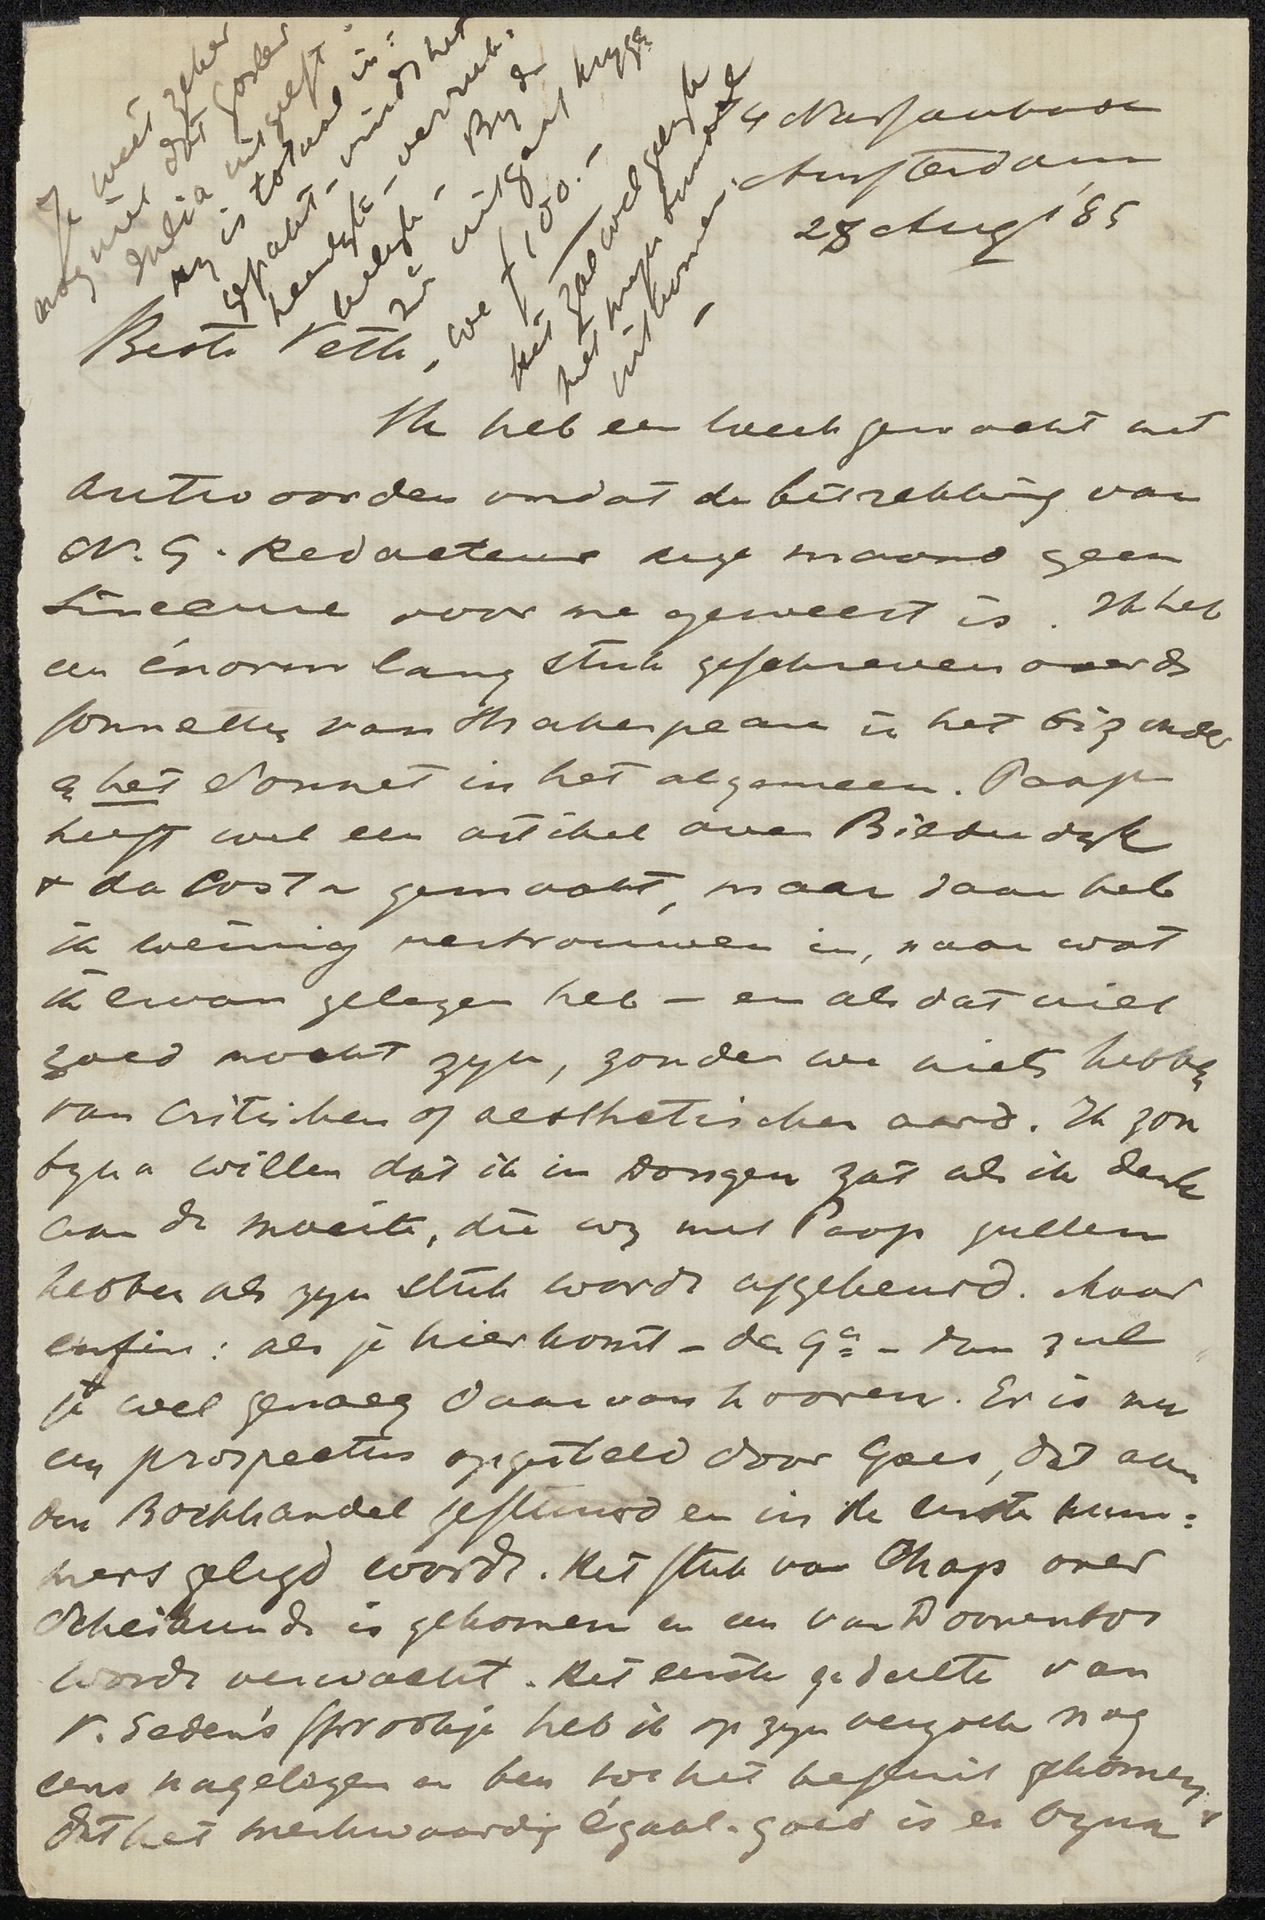 Je weet zeker
nog niet dat Gorter
Julia uit geeft.
hy is totaal in=
gepakt - vindt het
heerlyk - verruk=
kelyk - By de
uitgaaf krygen
we f 100.-
Het zal wel gelyk
met myn
uitkomen -
Nassaukade
Amsterdam.
28 Aug '85
Beste Veth,
Ik heb een week gewacht met
antwoorden omdat de betrekking van
N. G. Redacteur deze maand geen
sinecure voor me geweest is. Ik heb
een énorm lang stuk geschreven over de
sonnetten van Shakespeare in het bizonder
en het Sonnet in het algemeen. Paap
heeft wel een artikel over Bilderdyk
& da Costa gemaakt, maar daar heb
ik weinig vertrouwen in, naar wat
ik ervan gelezen heb - en als dat niet
goed mocht zyn, zouden we niets hebben
van critischen of aesthetischen aard. Ik zou
byna willen dat ik in Dongen zat als ik denk
aan de moeite, die wy met Paap zullen
hebben als zyn stuk wordt afgekeurd. Maar
enfin: als je hier komt - den 9en - dan zul
je wel genoeg daarvan hooren. Er is nu
een prospectus opgesteld door Goes, dat aan
den Boekhandel gestuurd en in de eerste num=
mers gelegd wordt. Het stuk van Chap over
Scheikunde is gekomen en een van Doorenbos
wordt verwacht. Het eerste gedeelte van
v. Eeden's sprookje heb ik op zyn verzoek nog
eens nagelezen en ben tot het besluit gekomen,
dat het merkwaardig égaal-goed is er byna